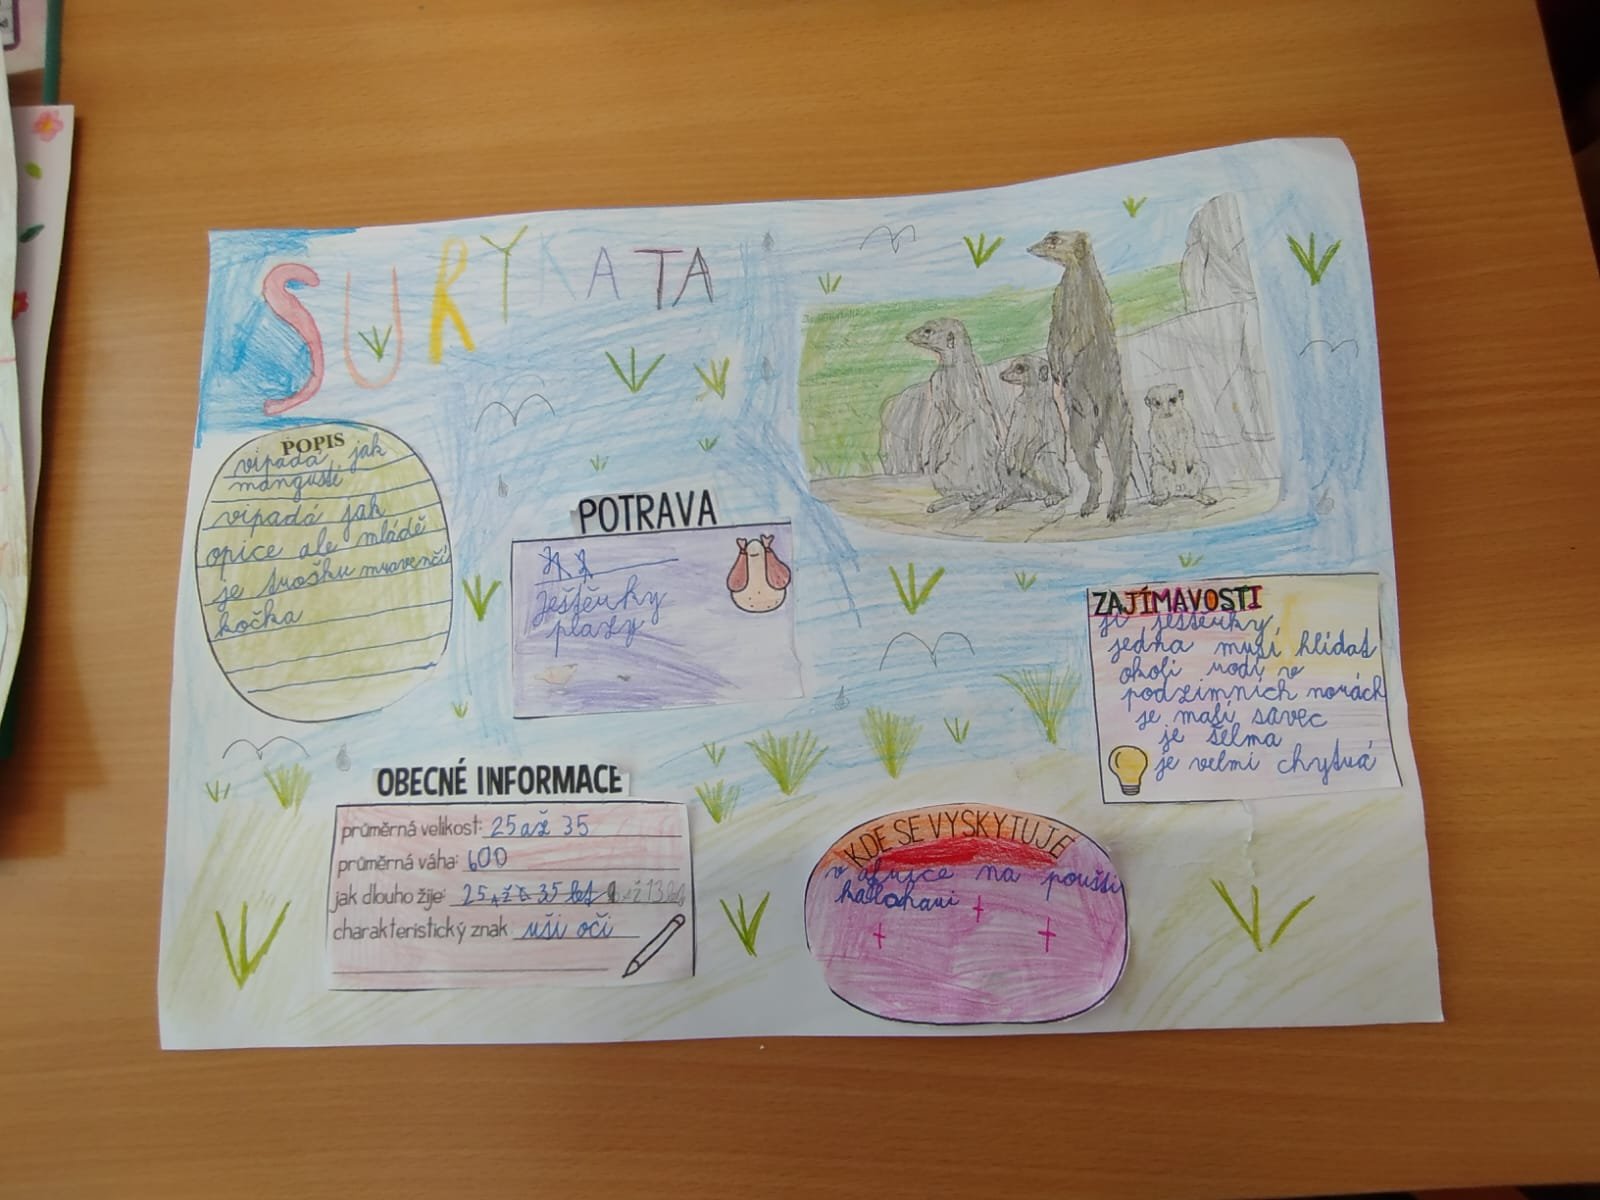 SURYKATA
POPIS
vipadá jak
mangusté
vipadá jak
opice ale mládě
je trošku mravenčí
kočka
POTRAVA
Ještěrky
plazy
ZAJÍMAVOSTI
jí ještěrky
jedna musí hlídat
okolí rodí v
podzimních norách
je malí savec
je šelma
je velmi chytrá
OBECNÉ INFORMACE
průměrná velikost: 25 až 35
průměrná váha: 600
jak dlouho žije: 25 až 35 let až 13 let
charakteristický znak uši oči
KDE SE VYSKYTUJE
v africe na poušti